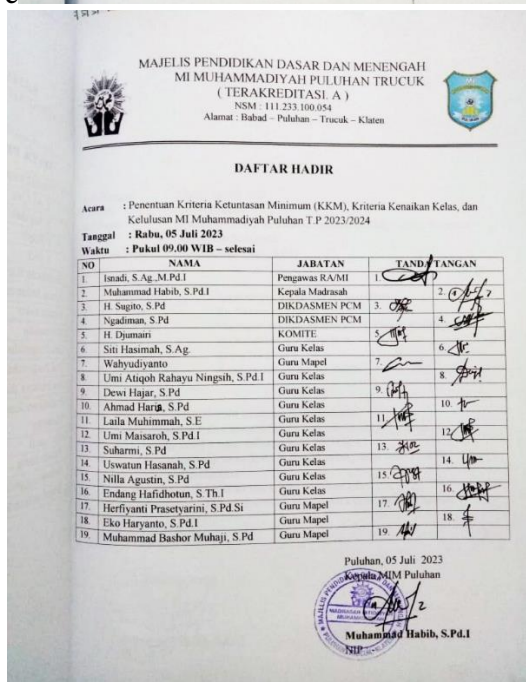 MAJELIS PENDIDIKAN DASAR DAN MENENGAH
MI MUHAMMADIYAH PULUHAN TRUCUK
( TERAKREDITASI. A )
NSM : 111.233.100.054
Alamat : Babad – Puluhan – Trucuk – Klaten
DAFTAR HADIR
Acara : Penentuan Kriteria Ketuntasan Minimum (KKM), Kriteria Kenaikan Kelas, dan
Kelulusan MI Muhammadiyah Puluhan T.P 2023/2024
Tanggal : Rabu, 05 Juli 2023
Waktu : Pukul 09.00 WIB – selesai
NO NAMA JABATAN TANDA TANGAN
1. Isnadi, S.Ag.,M.Pd.I Pengawas RA/MI 1.
2. Muhammad Habib, S.Pd.I Kepala Madrasah 2.
3. H. Sugito, S.Pd DIKDASMEN PCM 3.
4. Ngadiman, S.Pd DIKDASMEN PCM 4.
5. H. Djumairi KOMITE 5.
6. Siti Hasimah, S.Ag. Guru Kelas 6.
7. Wahyudiyanto Guru Mapel 7.
8. Umi Atiqoh Rahayu Ningsih, S.Pd.I Guru Kelas 8.
9. Dewi Hajar, S.Pd Guru Kelas 9.
10. Ahmad Haris, S.Pd Guru Kelas 10.
11. Laila Muhimmah, S.E Guru Kelas 11.
12. Umi Maisaroh, S.Pd.I Guru Kelas 12.
13. Suharmi, S.Pd Guru Kelas 13.
14. Uswatun Hasanah, S.Pd Guru Kelas 14.
15. Nilla Agustin, S.Pd Guru Kelas 15.
16. Endang Hafidhotun, S.Th.I Guru Kelas 16.
17. Herfiyanti Prasetyarini, S.Pd.Si Guru Mapel 17.
18. Eko Haryanto, S.Pd.I Guru Mapel 18.
19. Muhammad Bashor Muhaji, S.Pd Guru Mapel 19.
Puluhan, 05 Juli 2023
Kepala MIM Puluhan
Muhammad Habib, S.Pd.I
NIP -